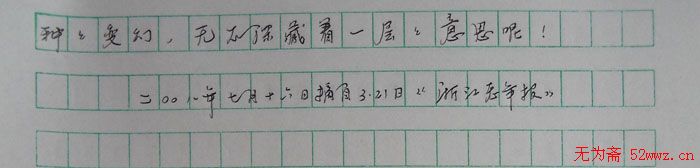 种々变幻，无不深藏着一层々意思呢！
二00八年七月十六日摘自3.21日“浙江老年报”
无为斋 52wwz.cn